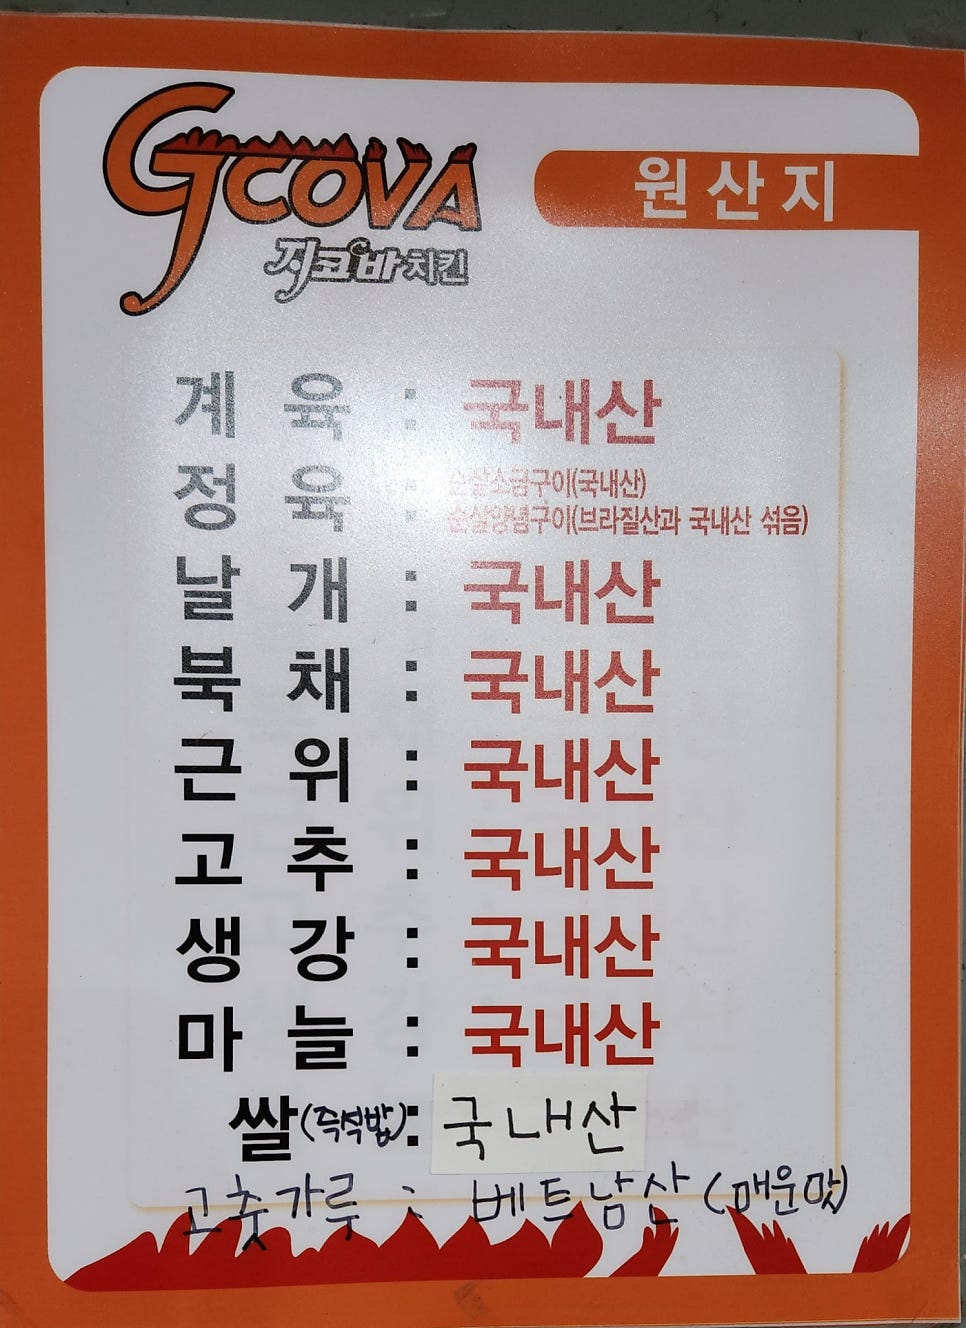 GCOVA
지코바 치킨
원산지
계 육 : 국내산
정 육 : 순살소금구이(국내산)
순살양념구이(브라질산과 국내산 섞음)
날 개 : 국내산
북 채 : 국내산
근 위 : 국내산
고 추 : 국내산
생 강 : 국내산
마 늘 : 국내산
쌀(즉석밥): 국내산
고춧가루 : 베트남산 (매운맛)